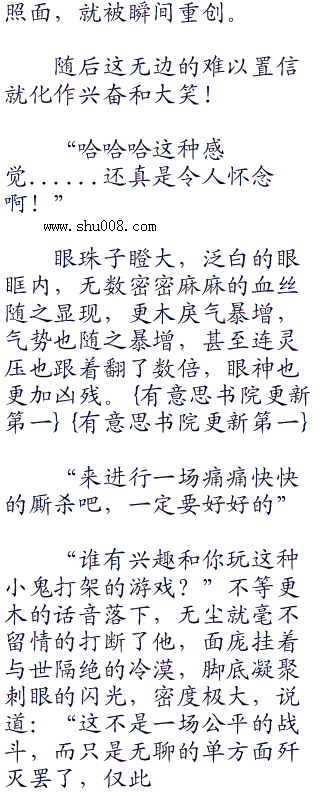 照面，就被瞬间重创。
随后这无边的难以置信
就化作兴奋和大笑！
“哈哈哈这种感
觉......还真是令人怀念
啊！”
www.shu008.com
眼珠子瞪大，泛白的眼
眶内，无数密密麻麻的血丝
随之显现，更木戾气暴增，
气势也随之暴增，甚至连灵
压也跟着翻了数倍，眼神也
更加凶残。{有意思书院更新
第一} {有意思书院更新第一}
“来进行一场痛痛快快
的厮杀吧，一定要好好的”
“谁有兴趣和你玩这种
小鬼打架的游戏？”不等更
木的话音落下，无尘就毫不
留情的打断了他，面庞挂着
与世隔绝的冷漠，脚底凝聚
刺眼的闪光，密度极大，说
道：“这不是一场公平的战
斗，而只是无聊的单方面歼
灭罢了，仅此